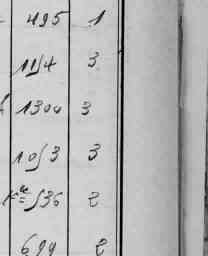 495 1
1154 3
1300 3
1053 3
536 2
699 2